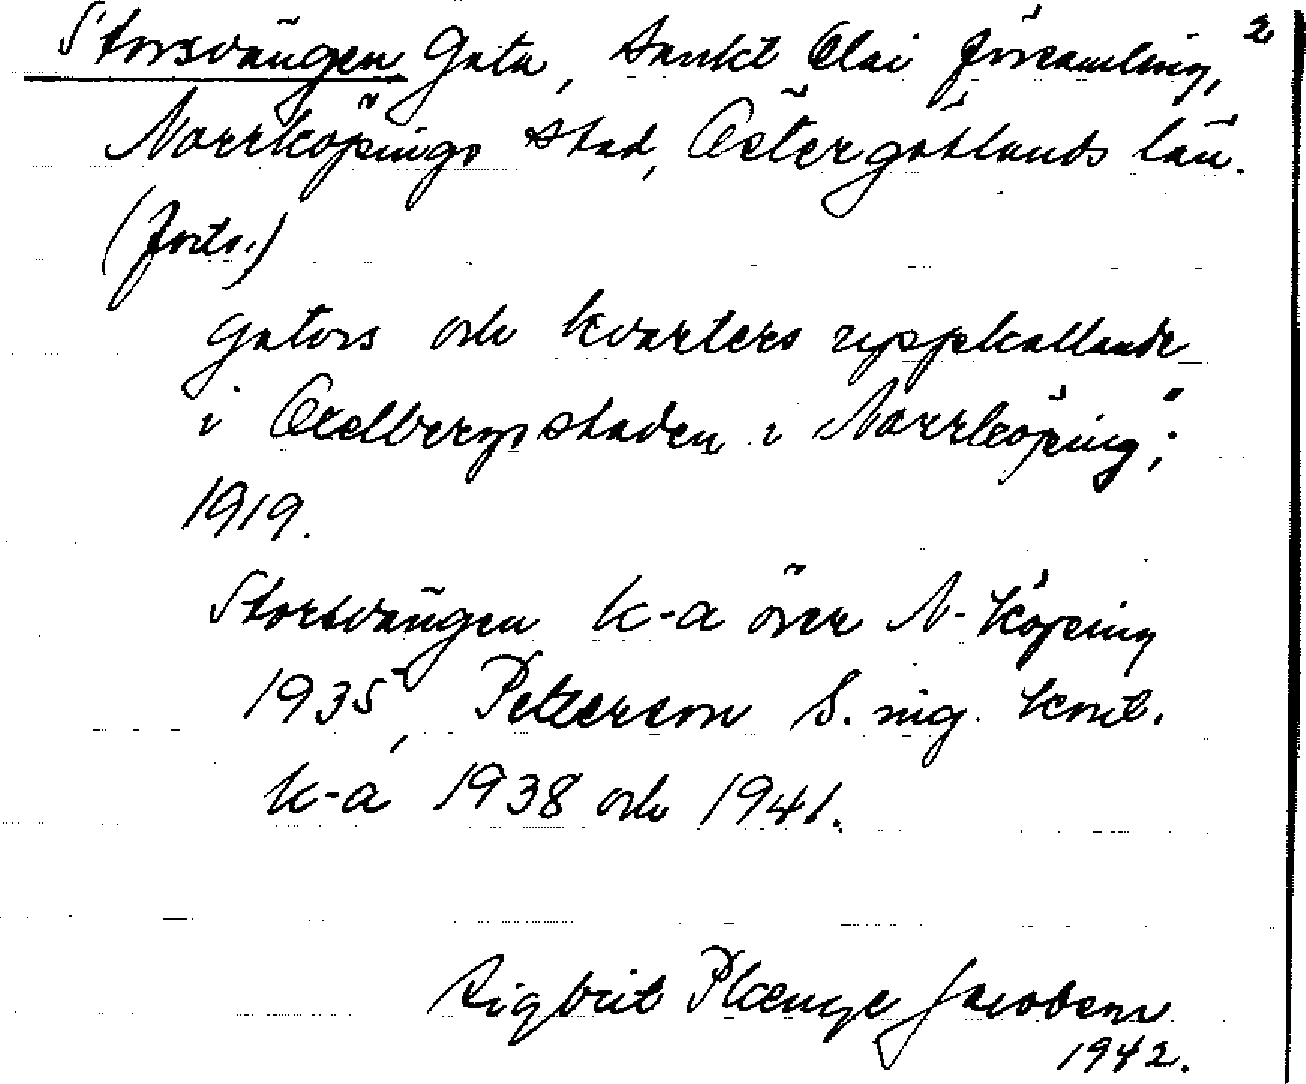 Storsvängen Gata, Sankt Olai församling, 2
Norrköpings stad, Östergötlands län.
(forts.)
gators och kvarters uppkallande
i Oxelbergsstaden i Norrköping";
1919.
Storsvängen k-a över N-köping
1935, Petterson S. ing. kont.
k-a 1938 och 1941.
Sigbrit Plænge Jacobson
1942.